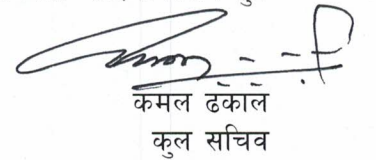 कमल ढकाल
कुल सचिव